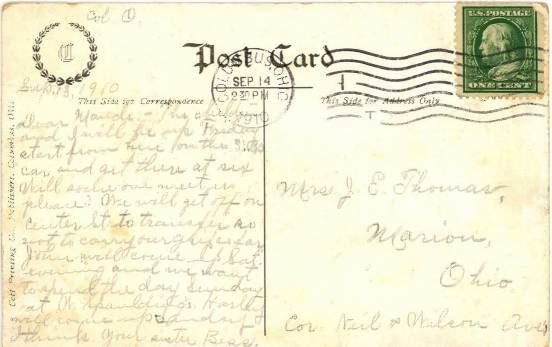 Col O.
C
Post Card
COLUMBUS, OHIO
SEP 14
230 PM
1910
U.S. POSTAGE
ONE CENT
Sept 13, 1910
This Side for Correspondence
This Side for Address Only
Dear Maude:- The
and I will be up Friday
start from here on the 3:30
car, and get there at six
Will some one meet us
please? We will get off on
Center St to transfer so
not to carry our grips far
John will come up Sat.
evening and we want
to spend the day Sunday
at W. Spaulding's. Harley
will come up Sunday I
think. Your sister Bess.
Mrs J. E. Thomas,
Marion,
Ohio
Cor Neil & Wilson Aves
Colt Printing Co. Publishers, Columbus, Ohio